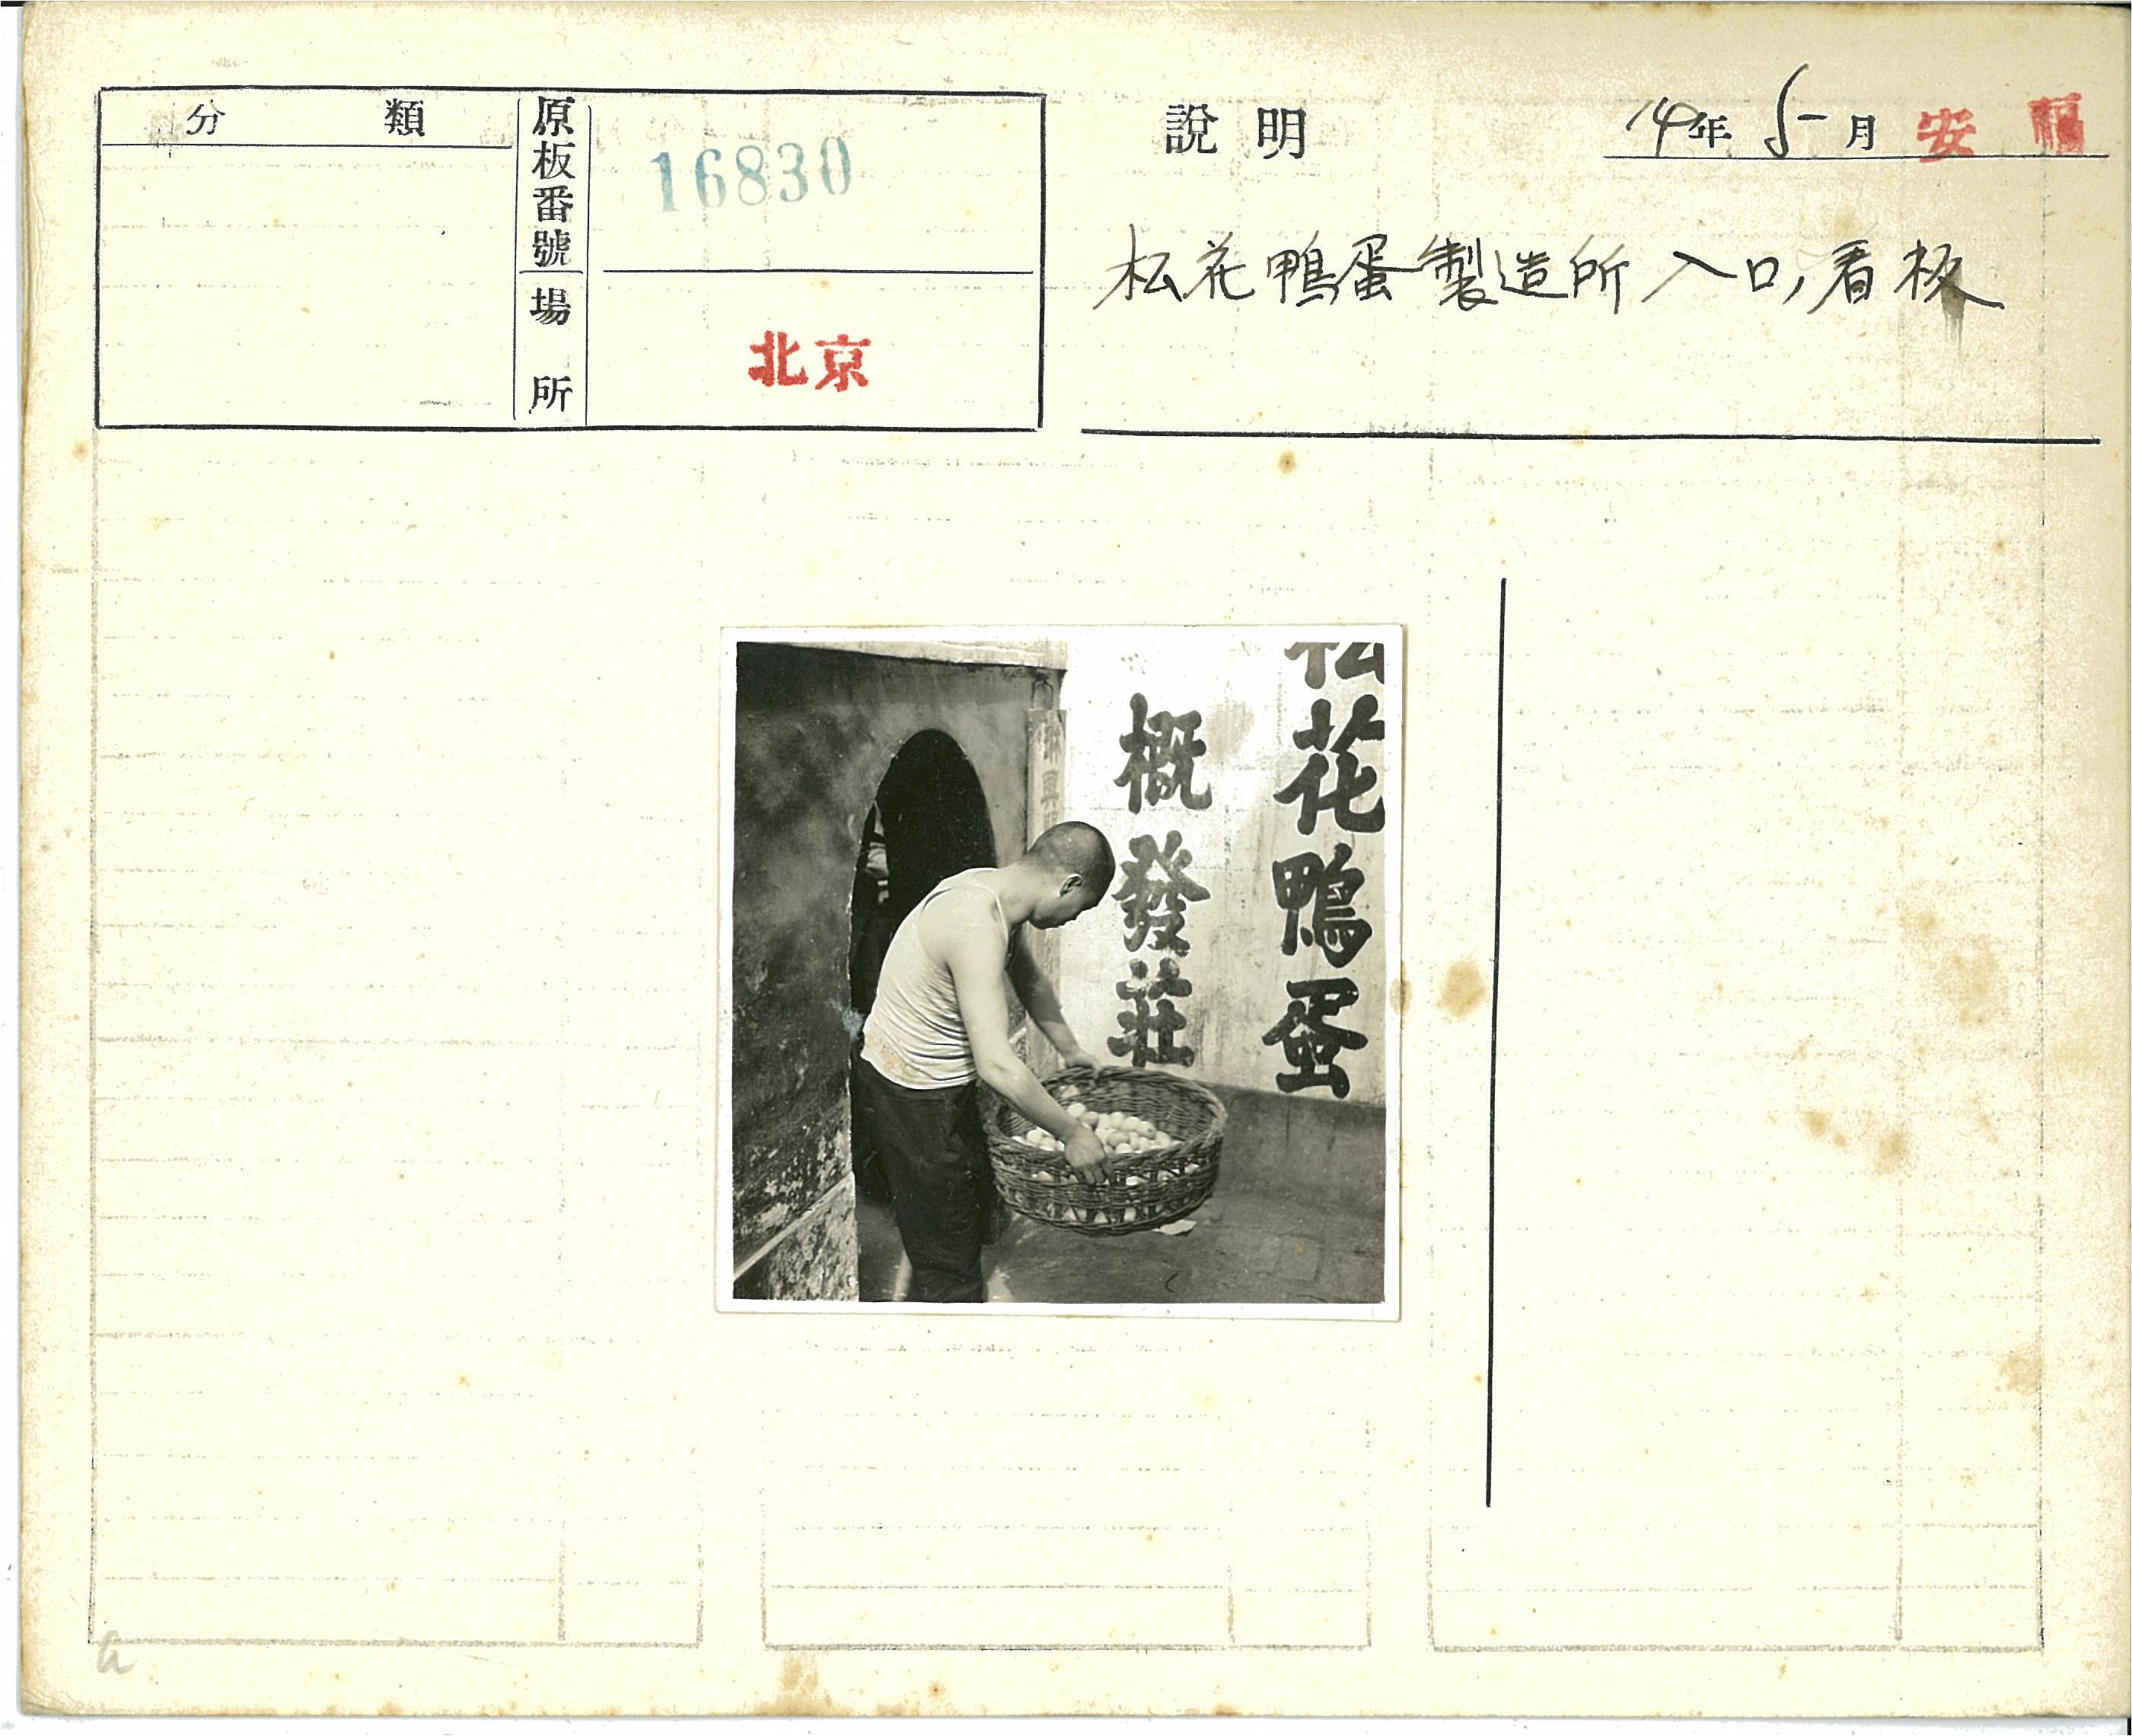 分類
原板番號
16830
場所
北京
説明
14年5月 安福
松花鴨蛋製造所入口,看板
松花鴨蛋
概發莊
a